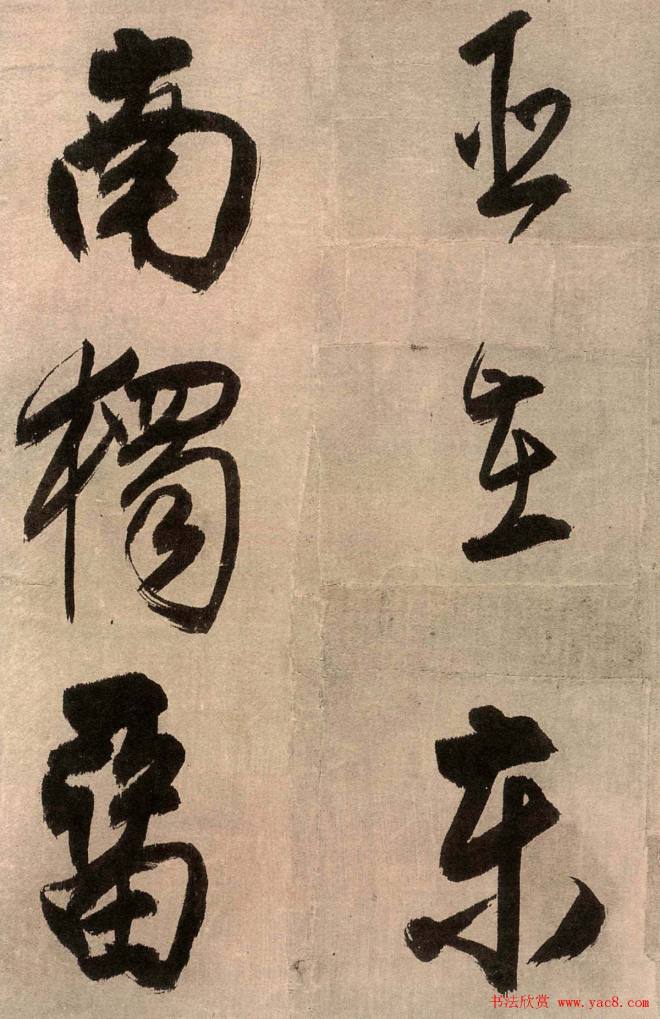 正在東
南獨畱
书法欣赏 www.yac8.com